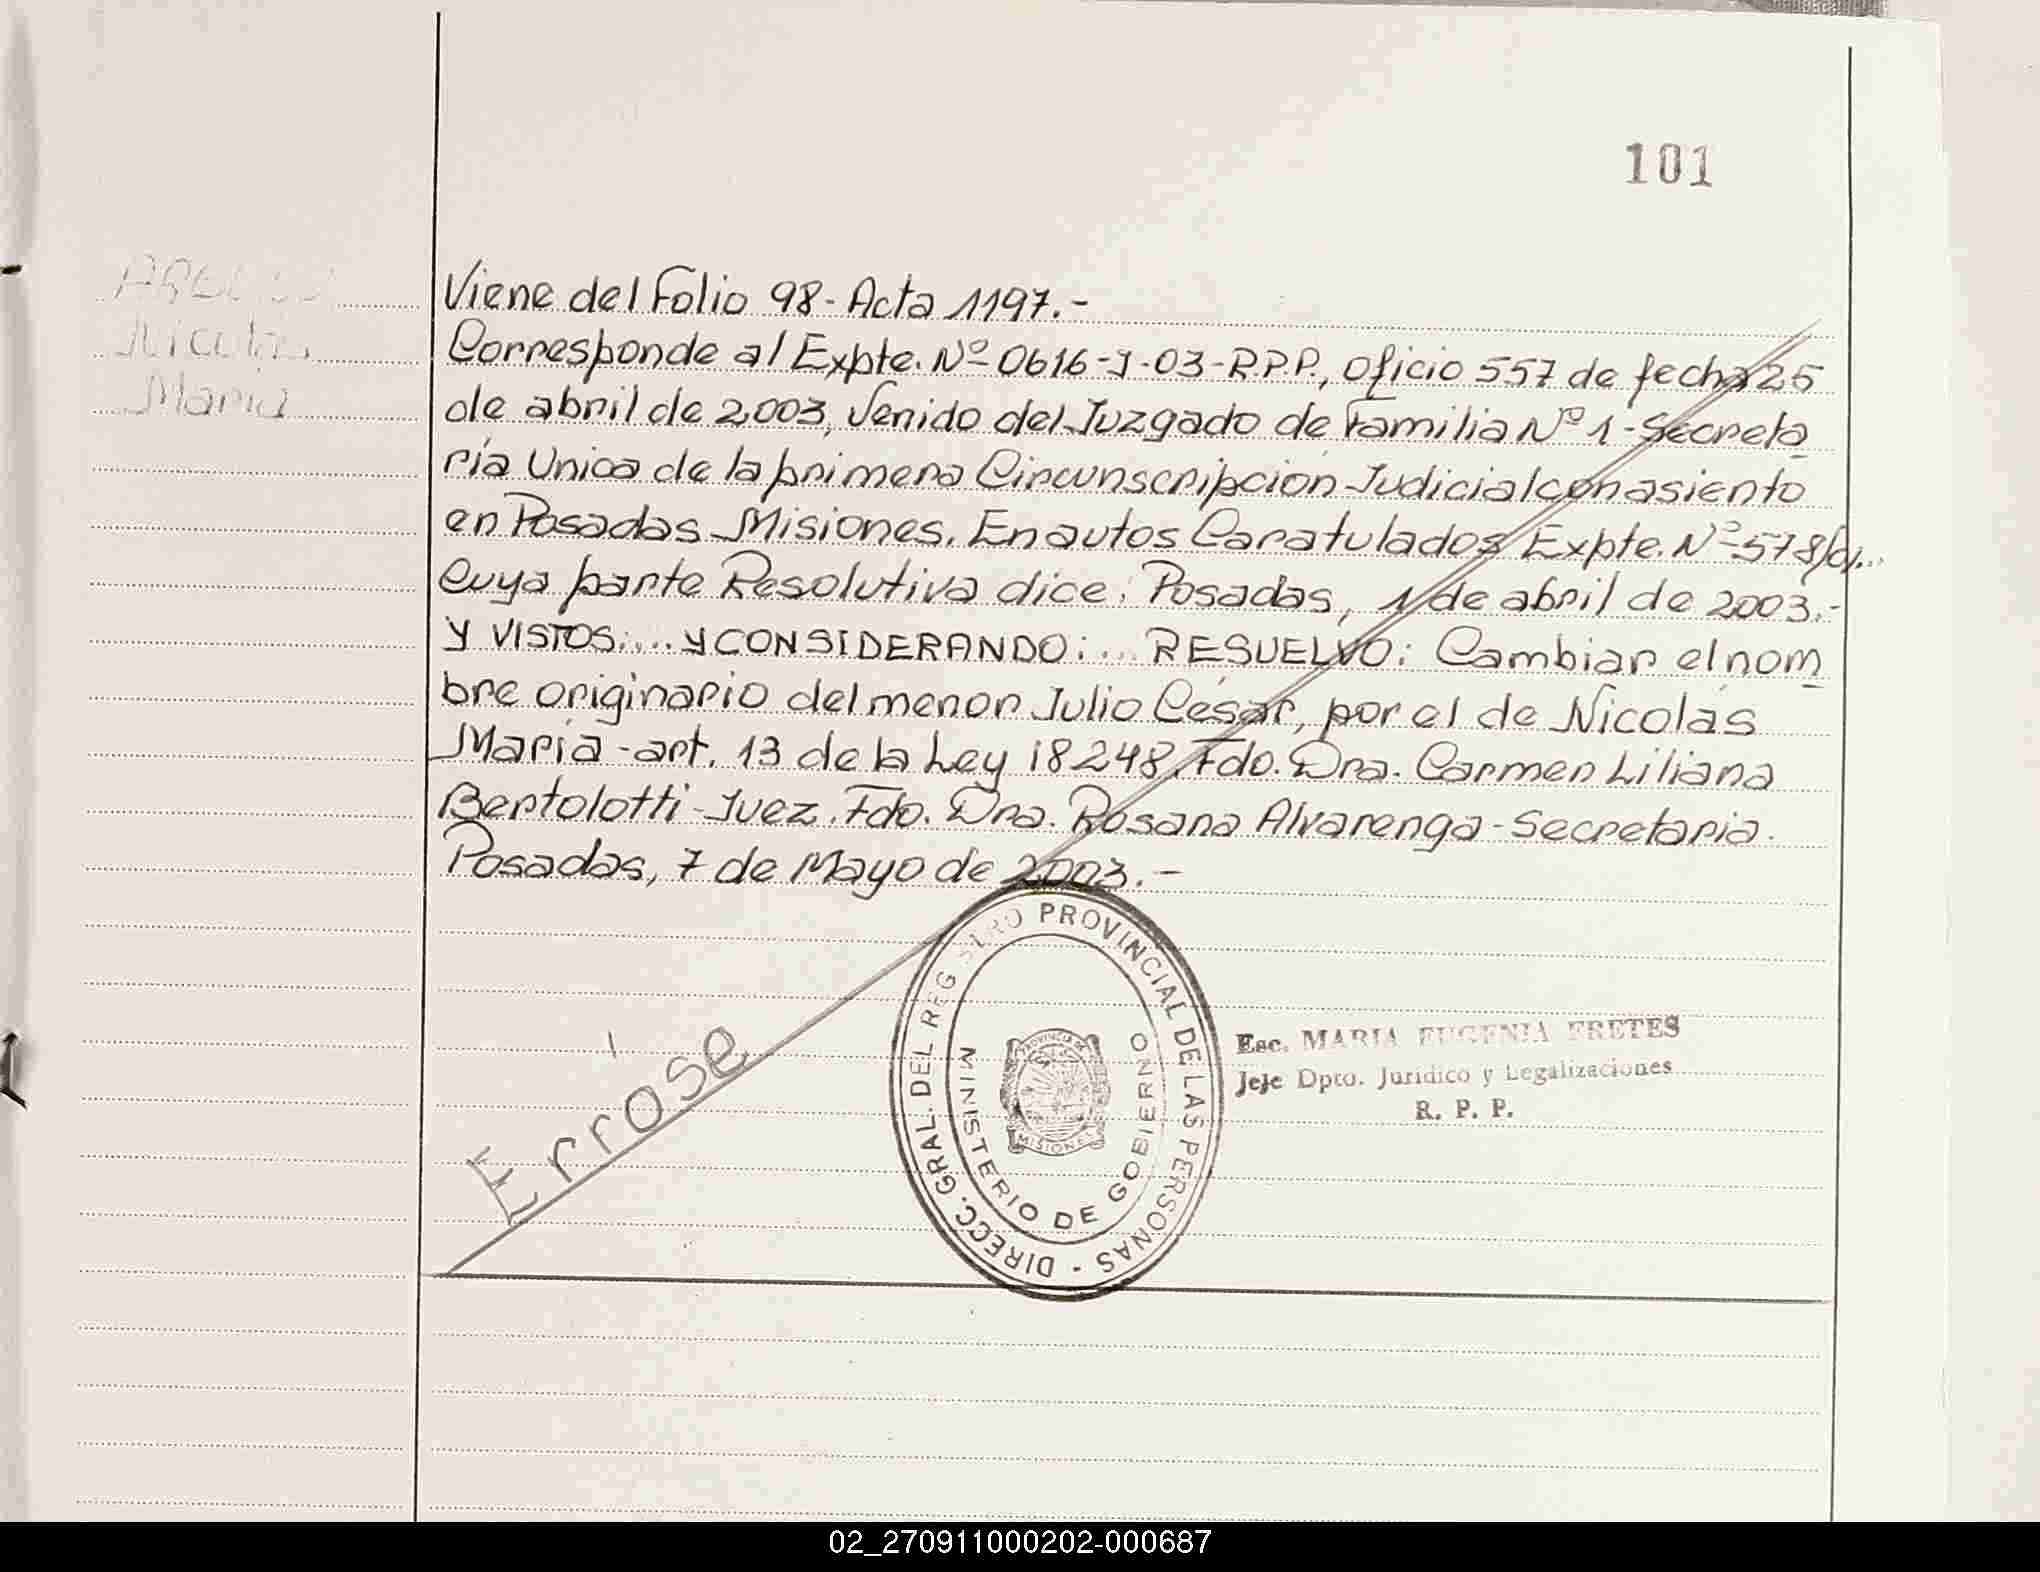 101
Nicolás
María
Viene del Folio 98 - Acta 1197.-
Corresponde al Expte. Nº 0616-J-03-R.P.P., oficio 557 de fecha 25
de abril de 2003, Venido del Juzgado de Familia Nº 1 - Secreta
ría Unica de la primera Circunscripción Judicial con asiento
en Posadas Misiones. En autos Caratulados Expte. Nº 578/01...
Cuya parte Resolutiva dice: Posadas, 1 de abril de 2003.-
Y VISTOS:.... Y CONSIDERANDO:... RESUELVO: Cambiar el nom
bre originario del menor Julio César, por el de Nicolás
María - art. 13 de la Ley 18248. Fdo. Dra. Carmen Liliana
Bertolotti - Juez. Fdo. Dra. Rosana Alvarenga - Secretaria.
Posadas, 7 de Mayo de 2003.-
Erróse
DIRECC. GRAL. DEL REGISTRO PROVINCIAL DE LAS PERSONAS -
MINISTERIO DE GOBIERNO
PROVINCIA DE
MISIONES
Esc. MARIA EUGENIA FRETES
Jefe Dpto. Jurídico y Legalizaciones
R. P. P.
02_270911000202-000687